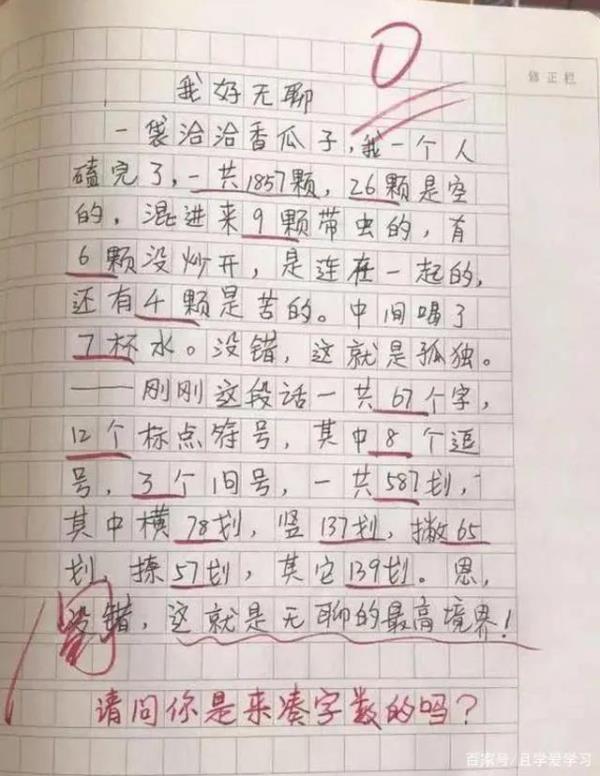 0
修正栏
我好无聊
一袋洽洽香瓜子,我一个人
磕完了,一共1857颗,26颗是空
的,混进来9颗带虫的,有
6颗没炒开,是连在一起的,
还有4颗是苦的。中间喝了
7杯水。没错,这就是孤独。
——刚刚这段话一共67个字,
12个标点符号,其中8个逗
号,3个旧号,一共587划,
其中横78划,竖137划,撇65
划,捺57划,其它139划。恩,
没错,这就是无聊的最高境界!
请问你是来凑字数的吗?
百家号/且学爱学习